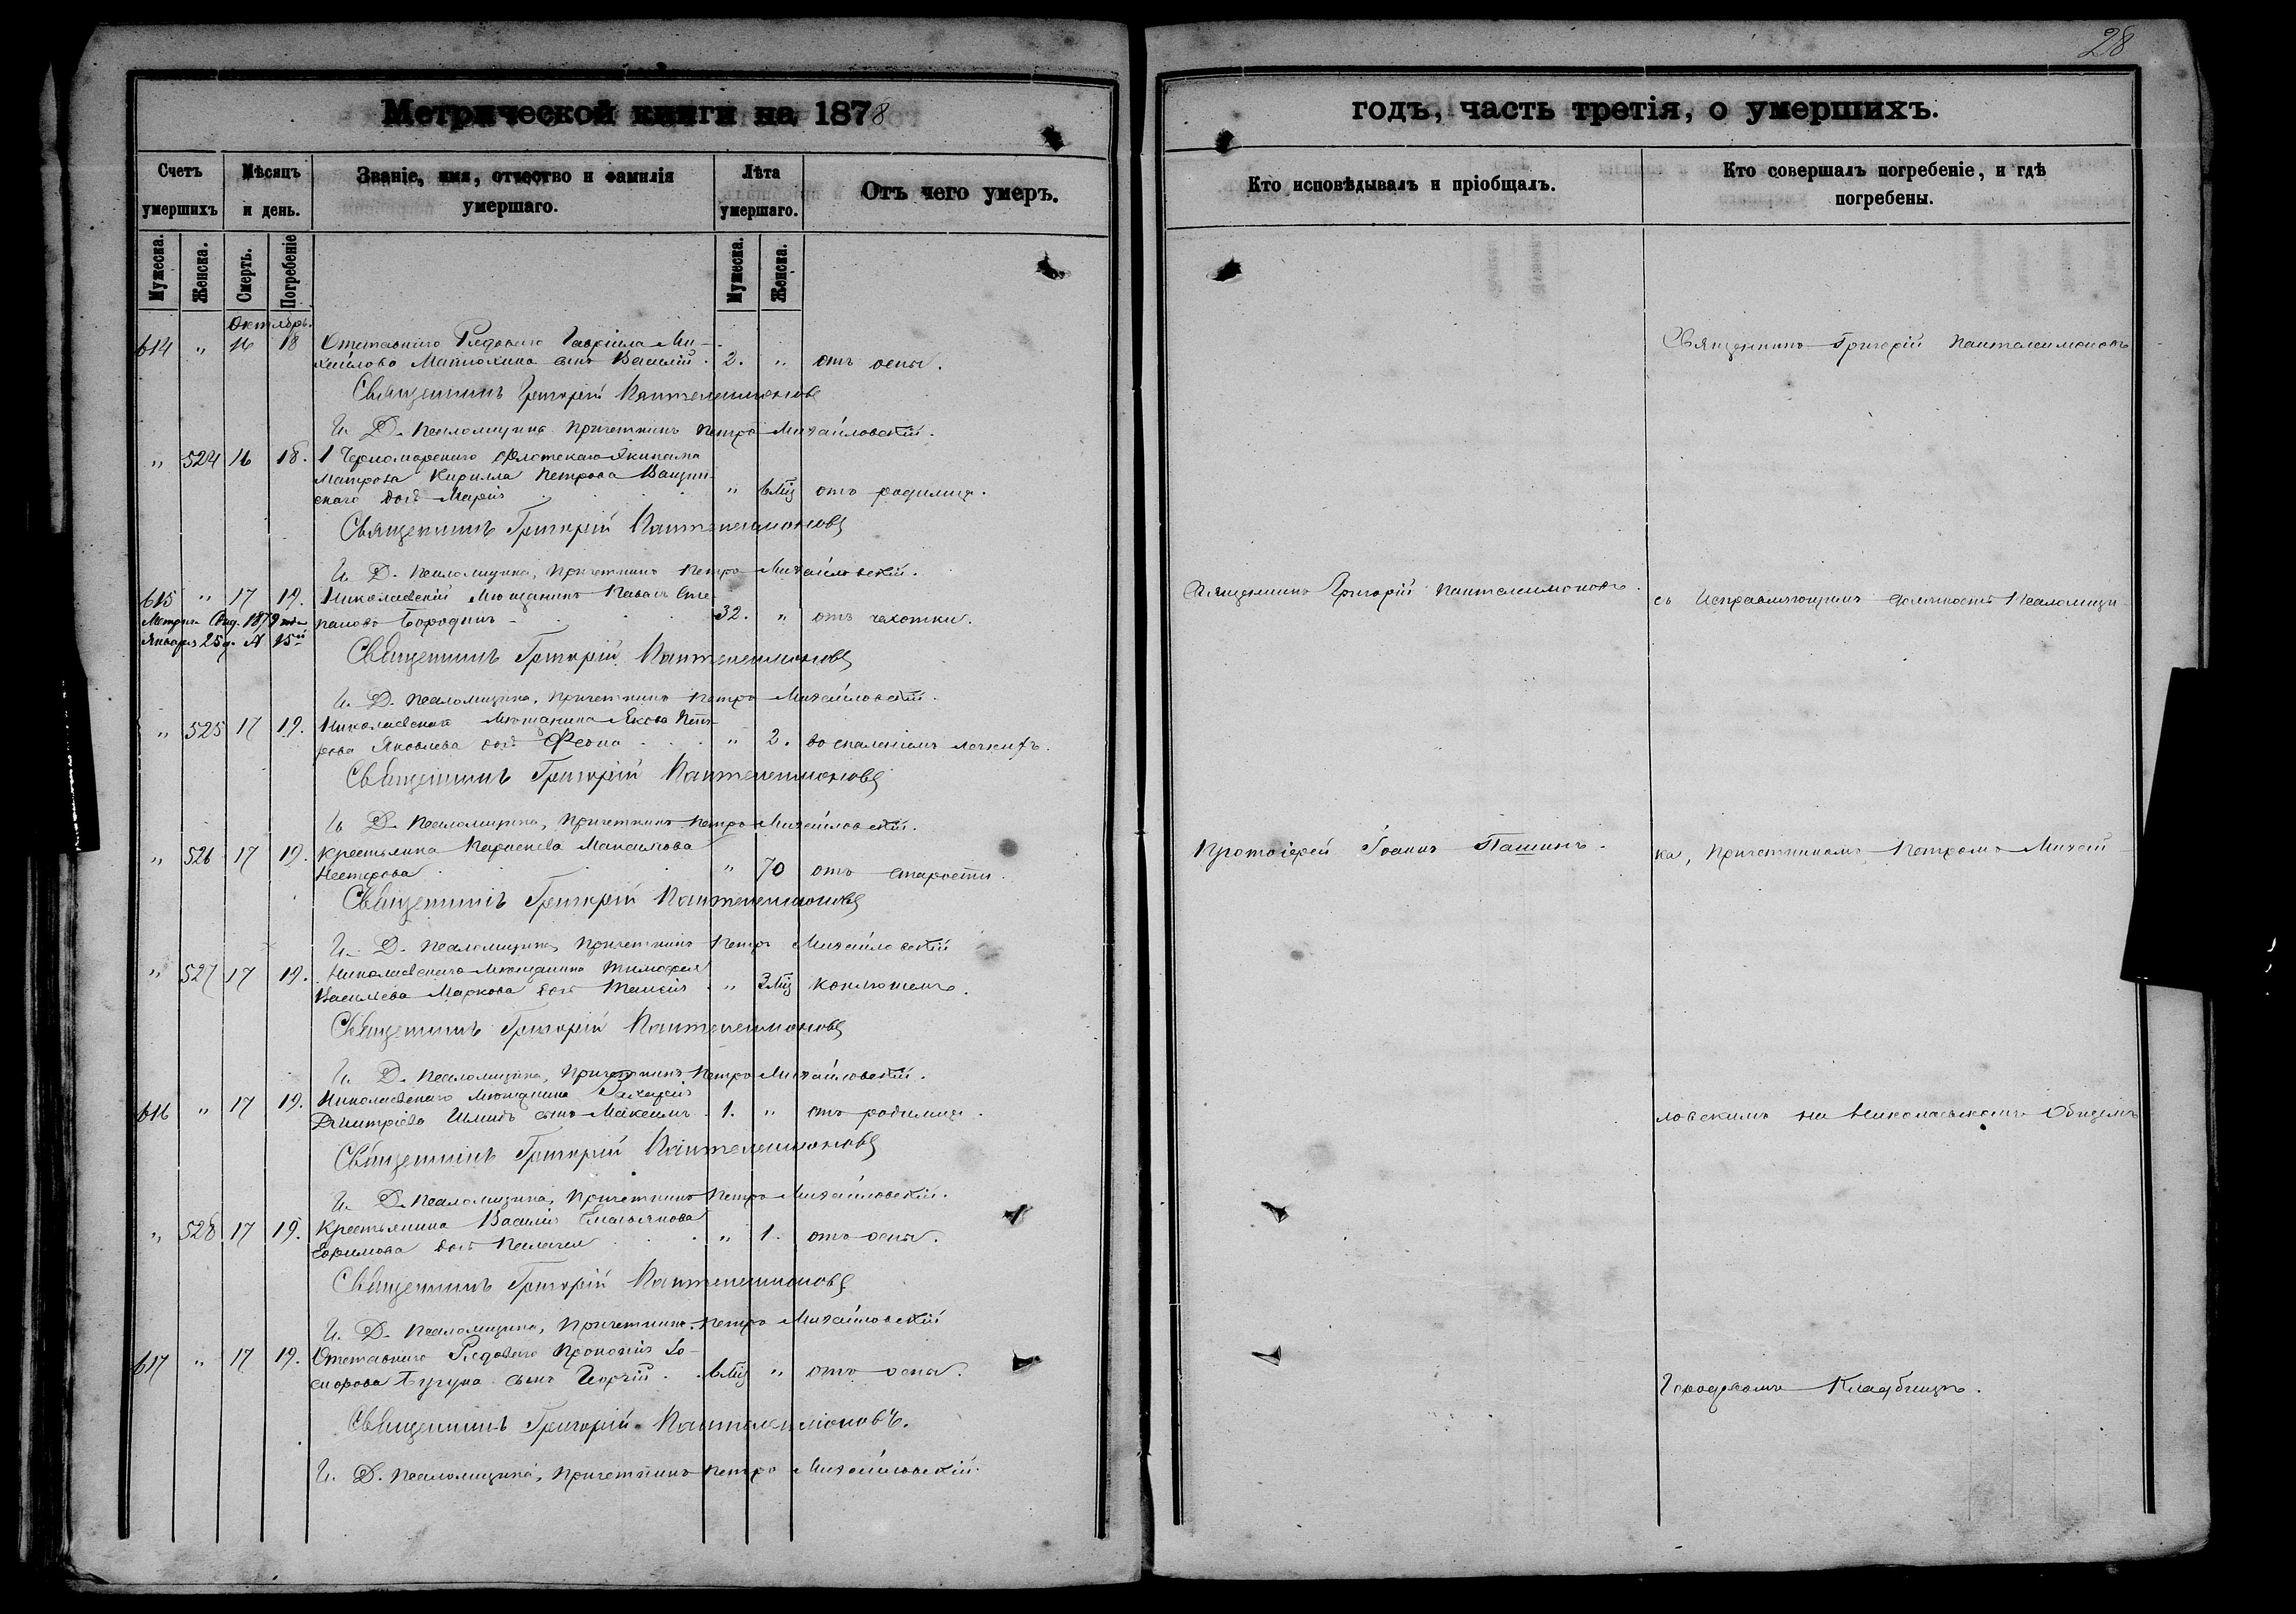 28
Метрической книги на 1878
годъ, часть третія, о умершихъ.
Счетъ умершихъ
Мѣсяцъ и день.
Званіе, имя, отчество и фамилія умершаго.
Лѣта умершаго.
Отъ чего умеръ.
Кто исповѣдывалъ и пріобщалъ.
Кто совершалъ погребеніе, и гдѣ погребены.
Мужеска. Женска. Смерть. Погребеніе Мужеска. Женска.
Октябрь.
614 " 16 18 Отставнаго Рядоваго Гавріила Ми-
хайлова Матюхина сынъ Василій. 2. " отъ оспы.
Священникъ Григорій Пантелеимоновъ
И. Д. Псаломщика Причетникъ Петръ Михайловскій.
" 524 16 18. 1 Черноморскаго Флотскаго Экипажа
Матроса Кирилла Петрова
скаго дочь Марія " 6 мц отъ родимца.
Священникъ Григорій Пантелеимоновъ
И. Д. Псаломщика, Причетникъ Петръ Михайловскій.
615 " 17 19. Николаевскій Мѣщанинъ Павелъ Сте-
пановъ Бородинъ 32. " отъ чахотки.
Января 25 д. № 15й
Священникъ Григорій Пантелеимоновъ
И. Д. Псаломщика, Причетникъ Петръ Михайловскій.
" 525 17 19. Николаевскаго Мѣщанина Якова Пет-
рова Яковлева дочь " 2. воспаленіемъ легкихъ.
Священникъ Григорій Пантелеимоновъ
И. Д. Псаломщика, Причетникъ Петръ Михайловскій.
" 526 17 19. Крестьянка Параскева Максимова
Нестерова " 70 отъ старости.
Священникъ Григорій Пантелеимоновъ
И. Д. Псаломщика, Причетникъ Петръ Михайловскій
" 527 17 19. Николаевскаго Мѣщанина Тимофея
Васильева Маркова дочь Таисія " 3 мц коклюшемъ.
Священникъ Григорій Пантелеимоновъ
И. Д. Псаломщика, Причетникъ Петръ Михайловскій.
616 " 17 19. Николаевскаго Мѣщанина Захарія
Дмитріева сынъ Максимъ. 1. " отъ родимца.
Священникъ Григорій Пантелеимоновъ
И. Д. Псаломщика, Причетникъ Петръ Михайловскій.
" 528 17 19. Крестьянина Василія Емельянова
Ефимова дочь Пелагея " 1. отъ оспы.
Священникъ Григорій Пантелеимоновъ
И. Д. Псаломщика, Причетникъ Петръ Михайловскій
617 " 17 19. Отставнаго Рядоваго Прокопія
сынъ Георгій. 6 мц " отъ оспы.
Священникъ Григорій Пантелеимоновъ.
И. Д. Псаломщика, Причетникъ Петръ Михайловскій.
Священникъ Григорій Пантелеимоновъ.
Протоіерей Іоаннъ Пашинъ.
Священникъ Григорій Пантелеимоновъ
съ Исправляющимъ должность Псаломщи-
ка, Причетникомъ Петромъ Михай
ловскимъ на Николаевскомъ Общемъ
Городскомъ Кладбищѣ.